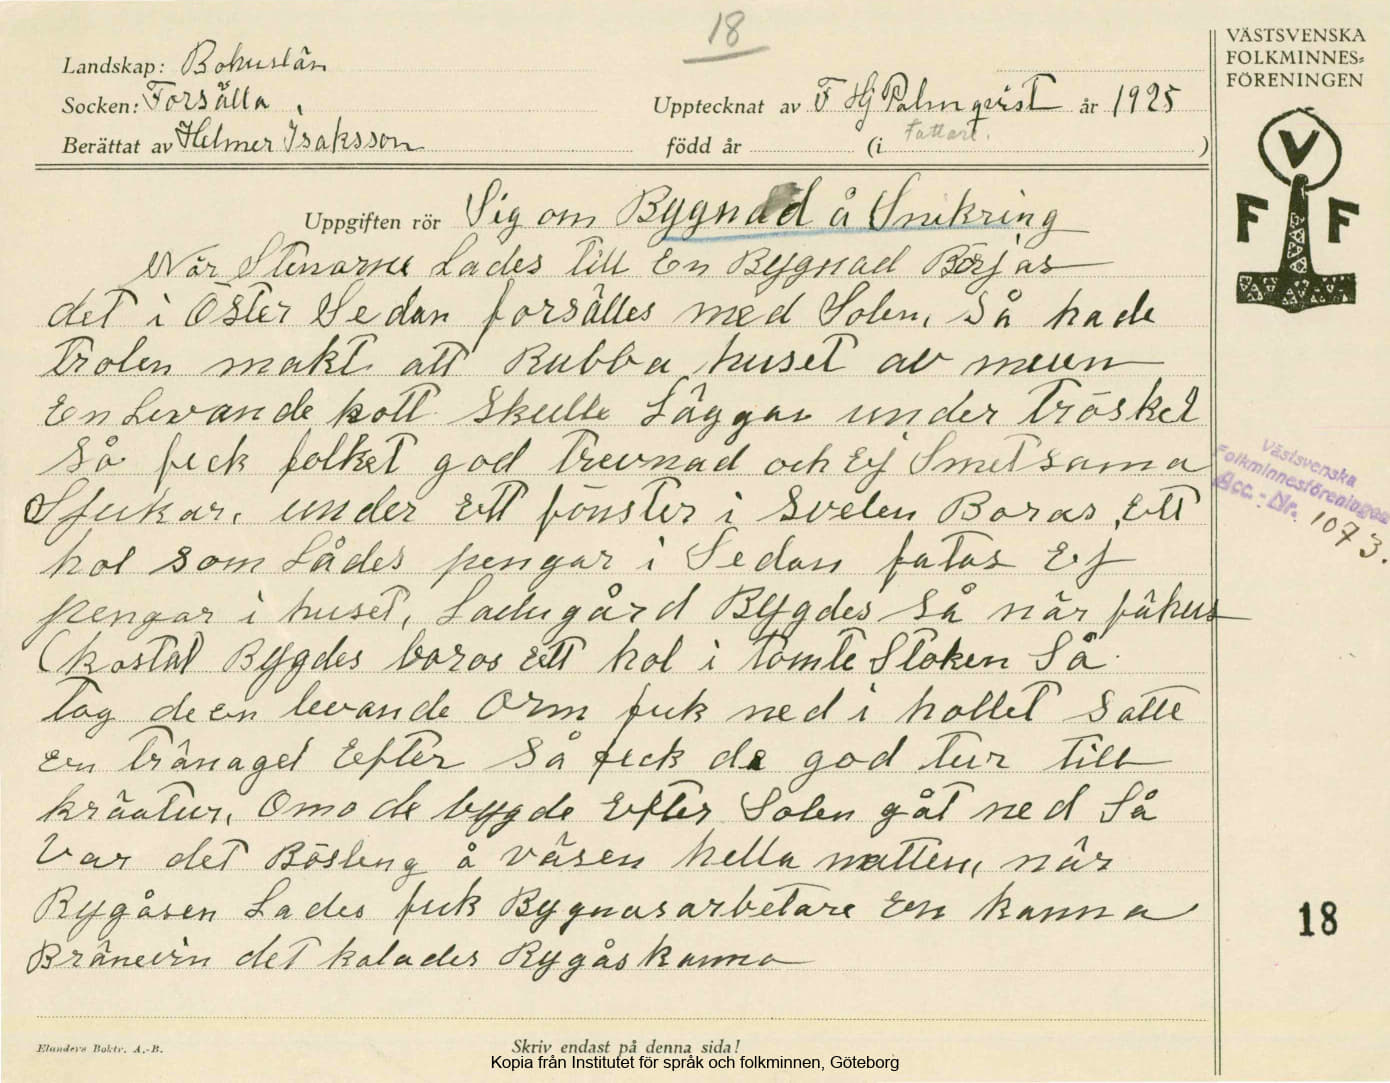 18
VÄSTSVENSKA
FOLKMINNES=
FÖRENINGEN
Landskap: Bohuslän
Socken: Forsälla
Upptecknat av F Hj Palmqvist år 1925
Berättat av Helmer Isaksson
född år (i Fattare. )
V
F F
Uppgiften rör Sig om Bygnad å Snikring
När Stenarne Lades till En Bygnad Börjas
det i Öster Sedan forsälles med Solen, Så hade
trolen makt att Rubba huset av men
En Levande kott Skulle Läggas under Tröskel
Så feck folket god trevnad och Ej Smetsama
Sjukar, under Ett fönster i Svelen Boras Ett
hol som Lådes pengar i Sedan fatas Ej
pengar i huset, Ladugård Bygdes Så när fähus
(kostal Bygdes boras Ett hol i tomte Stoken Så
tog de en levande Orm fuk ned i hollet Satte
en tränagel Efter Så feck de god tur till
kräatur, Omo de bygde Efter Solen gåt ned Så
Var det Bösleng å väsen hella natten, när
Rygåsen Lades fick Bygnasarbetare En kanna
Bränevin det kalades Rygåskanna
Västsvenska
Folkminnesföreningen
Acc.-Nr. 1073.
18
Elanders Boktr. A.-B.
Skriv endast på denna sida!
Kopia från Institutet för språk och folkminnen, Göteborg